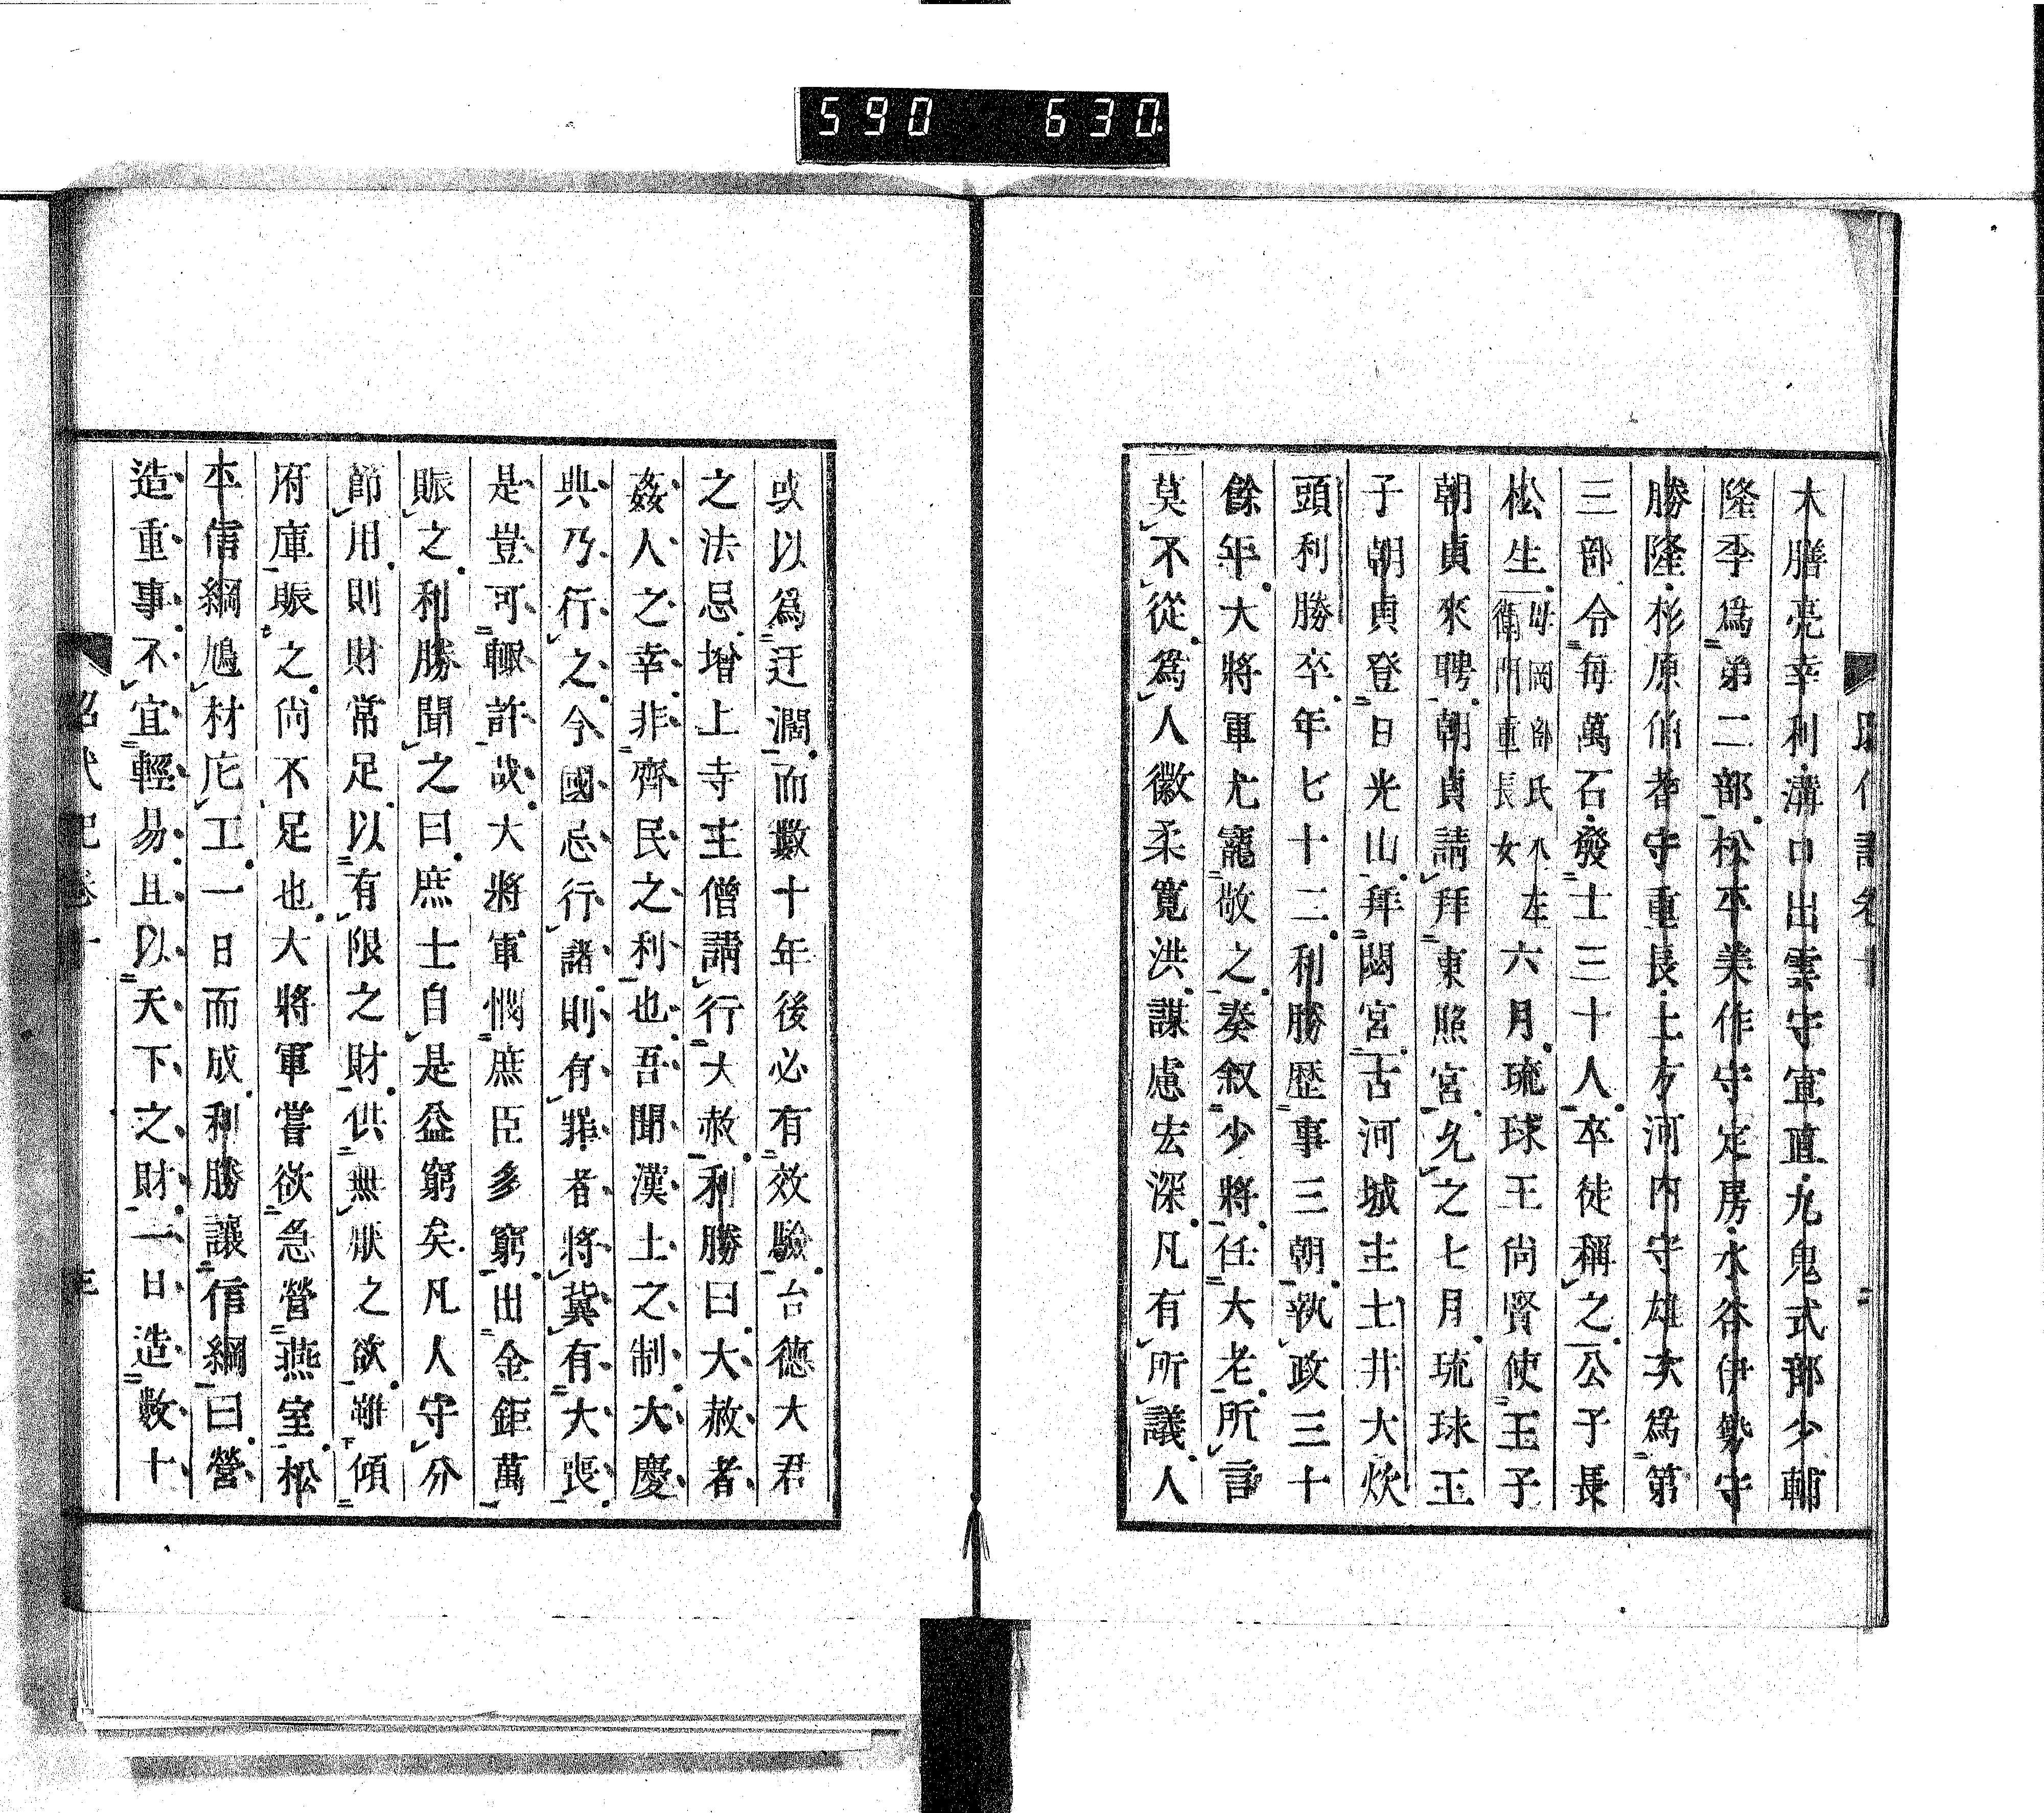 590 630
大膳亮幸利溝口出雲守宣直九鬼式部少輔
隆季爲弟二部松平美作守定房水谷伊勢守
勝隆杉原伯耆守重長土方河內守雄次爲第
三部令每萬石發士三十人卒徒稱之公子長
松生母岡部氏八左衞門重長女六月琉球王尙賢使王子
朝貞來聘朝貞請拜東照宮允之七月琉球王
子朝貞登日光山拜閟宮古河城主土井大炊
頭利勝卒年七十二利勝歷事三朝執政三十
餘年大將軍尤寵敬之奏叙少將任大老所言
莫不從爲人徽柔寬洪謀慮宏深凡有所議人
或以爲迂濶而數十年後必有效驗台德大君
之法忌增上寺主僧請行大赦利勝曰大赦者
姦人之幸非齊民之利也吾聞漢土之制大慶
典乃行之今國忌行諸則有罪者將冀有大喪
是豈可輙許哉大將軍憫庶臣多窮出金鉅萬
賑之利勝聞之曰庶士自是益窮矣凡人守分
節用則財常足以有限之財供無猒之欲雖傾
府庫賑之尙不足也大將軍嘗欲急營燕室松
平信綱鳩材庀工一日而成利勝讓信綱曰營
造重事不宜輕易且以天下之財一日造數十